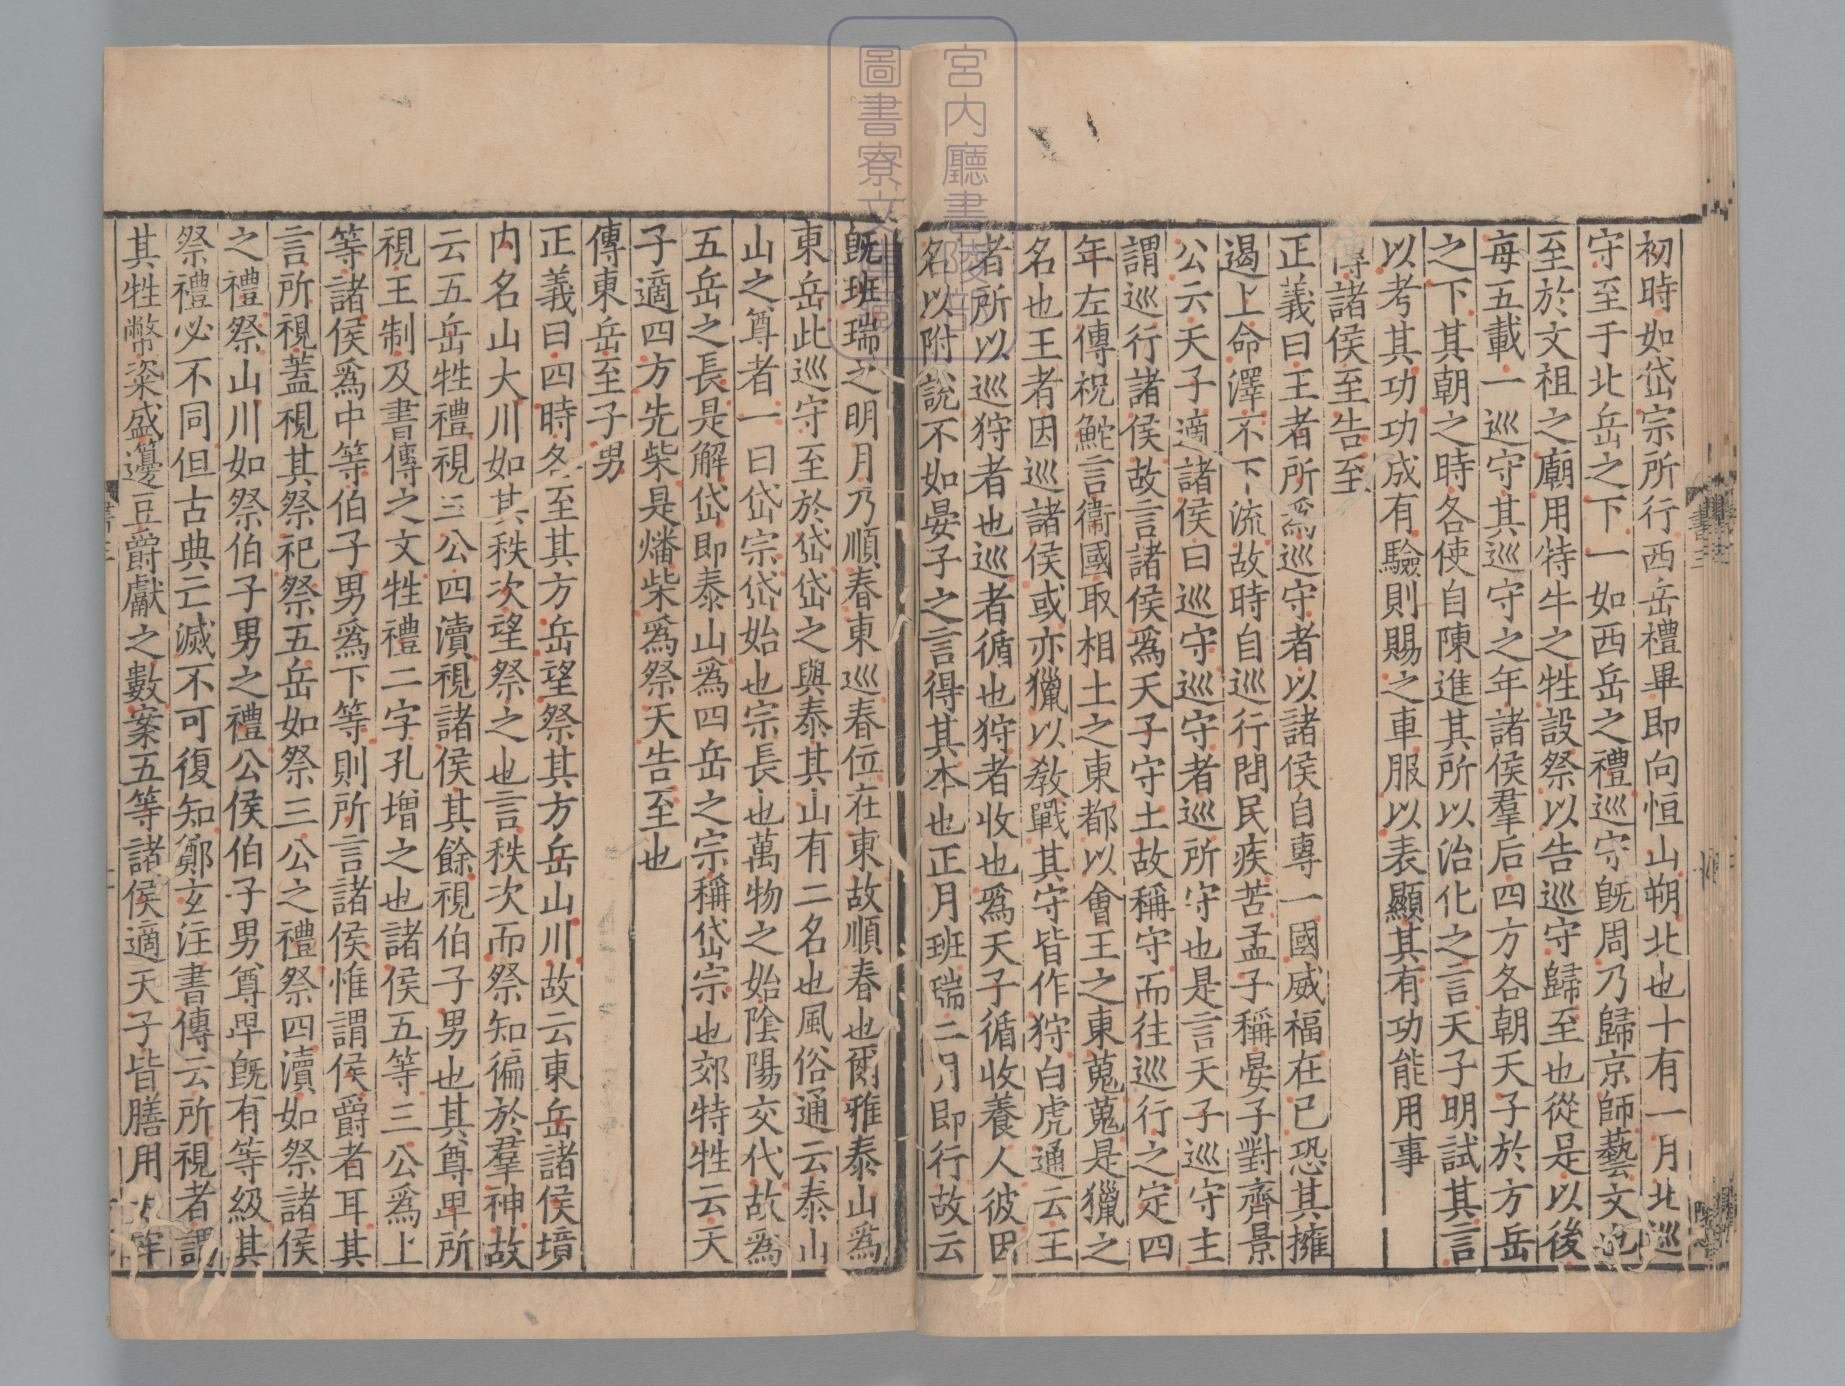 初時如岱宗所行西岳禮畢即向恒山朔北也十有一月北巡
守至于北岳之下一如西岳之禮巡守旣周乃歸京師藝文也
至於文祖之廟用特牛之牲設祭以告巡守歸至也從是以後
每五載一巡守其巡守之年諸侯羣后四方各朝天子於方岳
之下其朝之時各使自陳進其所以治化之言天子明試其言
以考其功功成有驗則賜之車服以表顯其有功能用事
傳諸侯至告至
正義曰王者所爲巡守者以諸侯自專一國威福在己恐其擁
遏上命澤不下流故時自巡行問民疾苦孟子稱晏子對齊景
公云天子適諸侯曰巡守巡守者巡所守也是言天子巡守主
謂巡行諸侯故言諸侯爲天子守土故稱守而往巡行之定四
年左傳祝鮀言衞國取相土之東都以會王之東蒐蒐是獵之
名也王者因巡諸侯或亦獵以敎戰其守皆作狩白虎通云王
者所以巡狩者也巡者循也狩者收也爲天子循收養人彼因
名以附說不如晏子之言得其本也正月班瑞二月即行故云
旣班瑞之明月乃順春東巡春位在東故順春也爾雅泰山爲
東岳此巡守至於岱岱之與泰其山有二名也風俗通云泰山
山之尊者一曰岱宗岱始也宗長也萬物之始陰陽交代故爲
五岳之長是解岱即泰山爲四岳之宗稱岱宗也郊特牲云天
子適四方先柴是燔柴爲祭天告至也
傳東岳至子男
正義曰四時各至其方岳望祭其方岳山川故云東岳諸侯境
内名山大川如其秩次望祭之也言秩次而祭知徧於羣神故
云五岳牲禮視三公四瀆視諸侯其餘視伯子男也其尊卑所
視王制及書傳之文牲禮二字孔增之也諸侯五等三公爲上
等諸侯爲中等伯子男爲下等則所言諸侯惟謂侯爵者耳其
言所視蓋視其祭祀祭五岳如祭三公之禮祭四瀆如祭諸侯
之禮祭山川如祭伯子男之禮公侯伯子男尊卑旣有等級其
祭禮必不同但古典亡滅不可復知鄭玄注書傳云所視者謂
其牲幣粢盛籩豆爵獻之數案五等諸侯適天子皆膳用太牢
宮内廳書陵部
圖書寮文庫